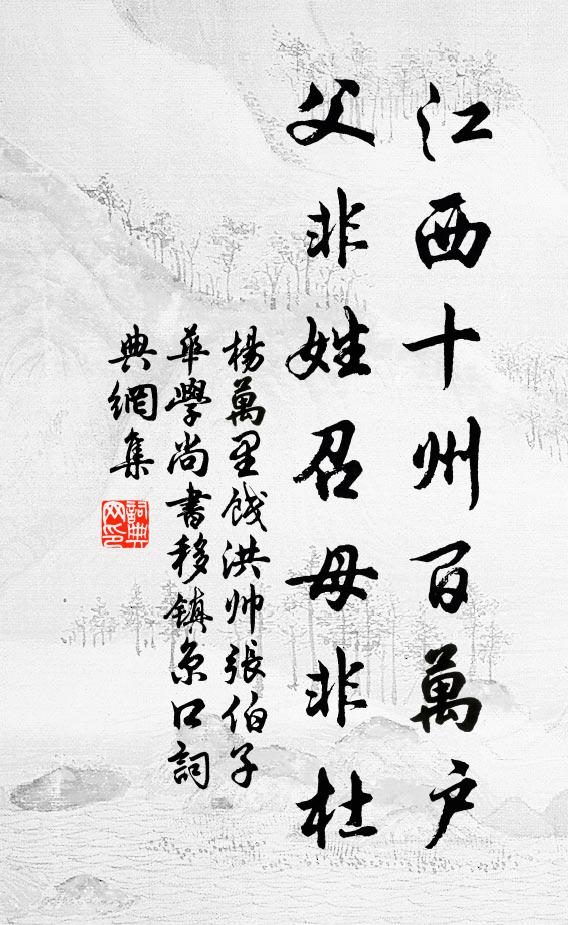 江西十州百萬户
父非姓召母非杜
楊萬里餞洪帅張伯子
華學尚書移鎮京口詞
典網集
詞典網印